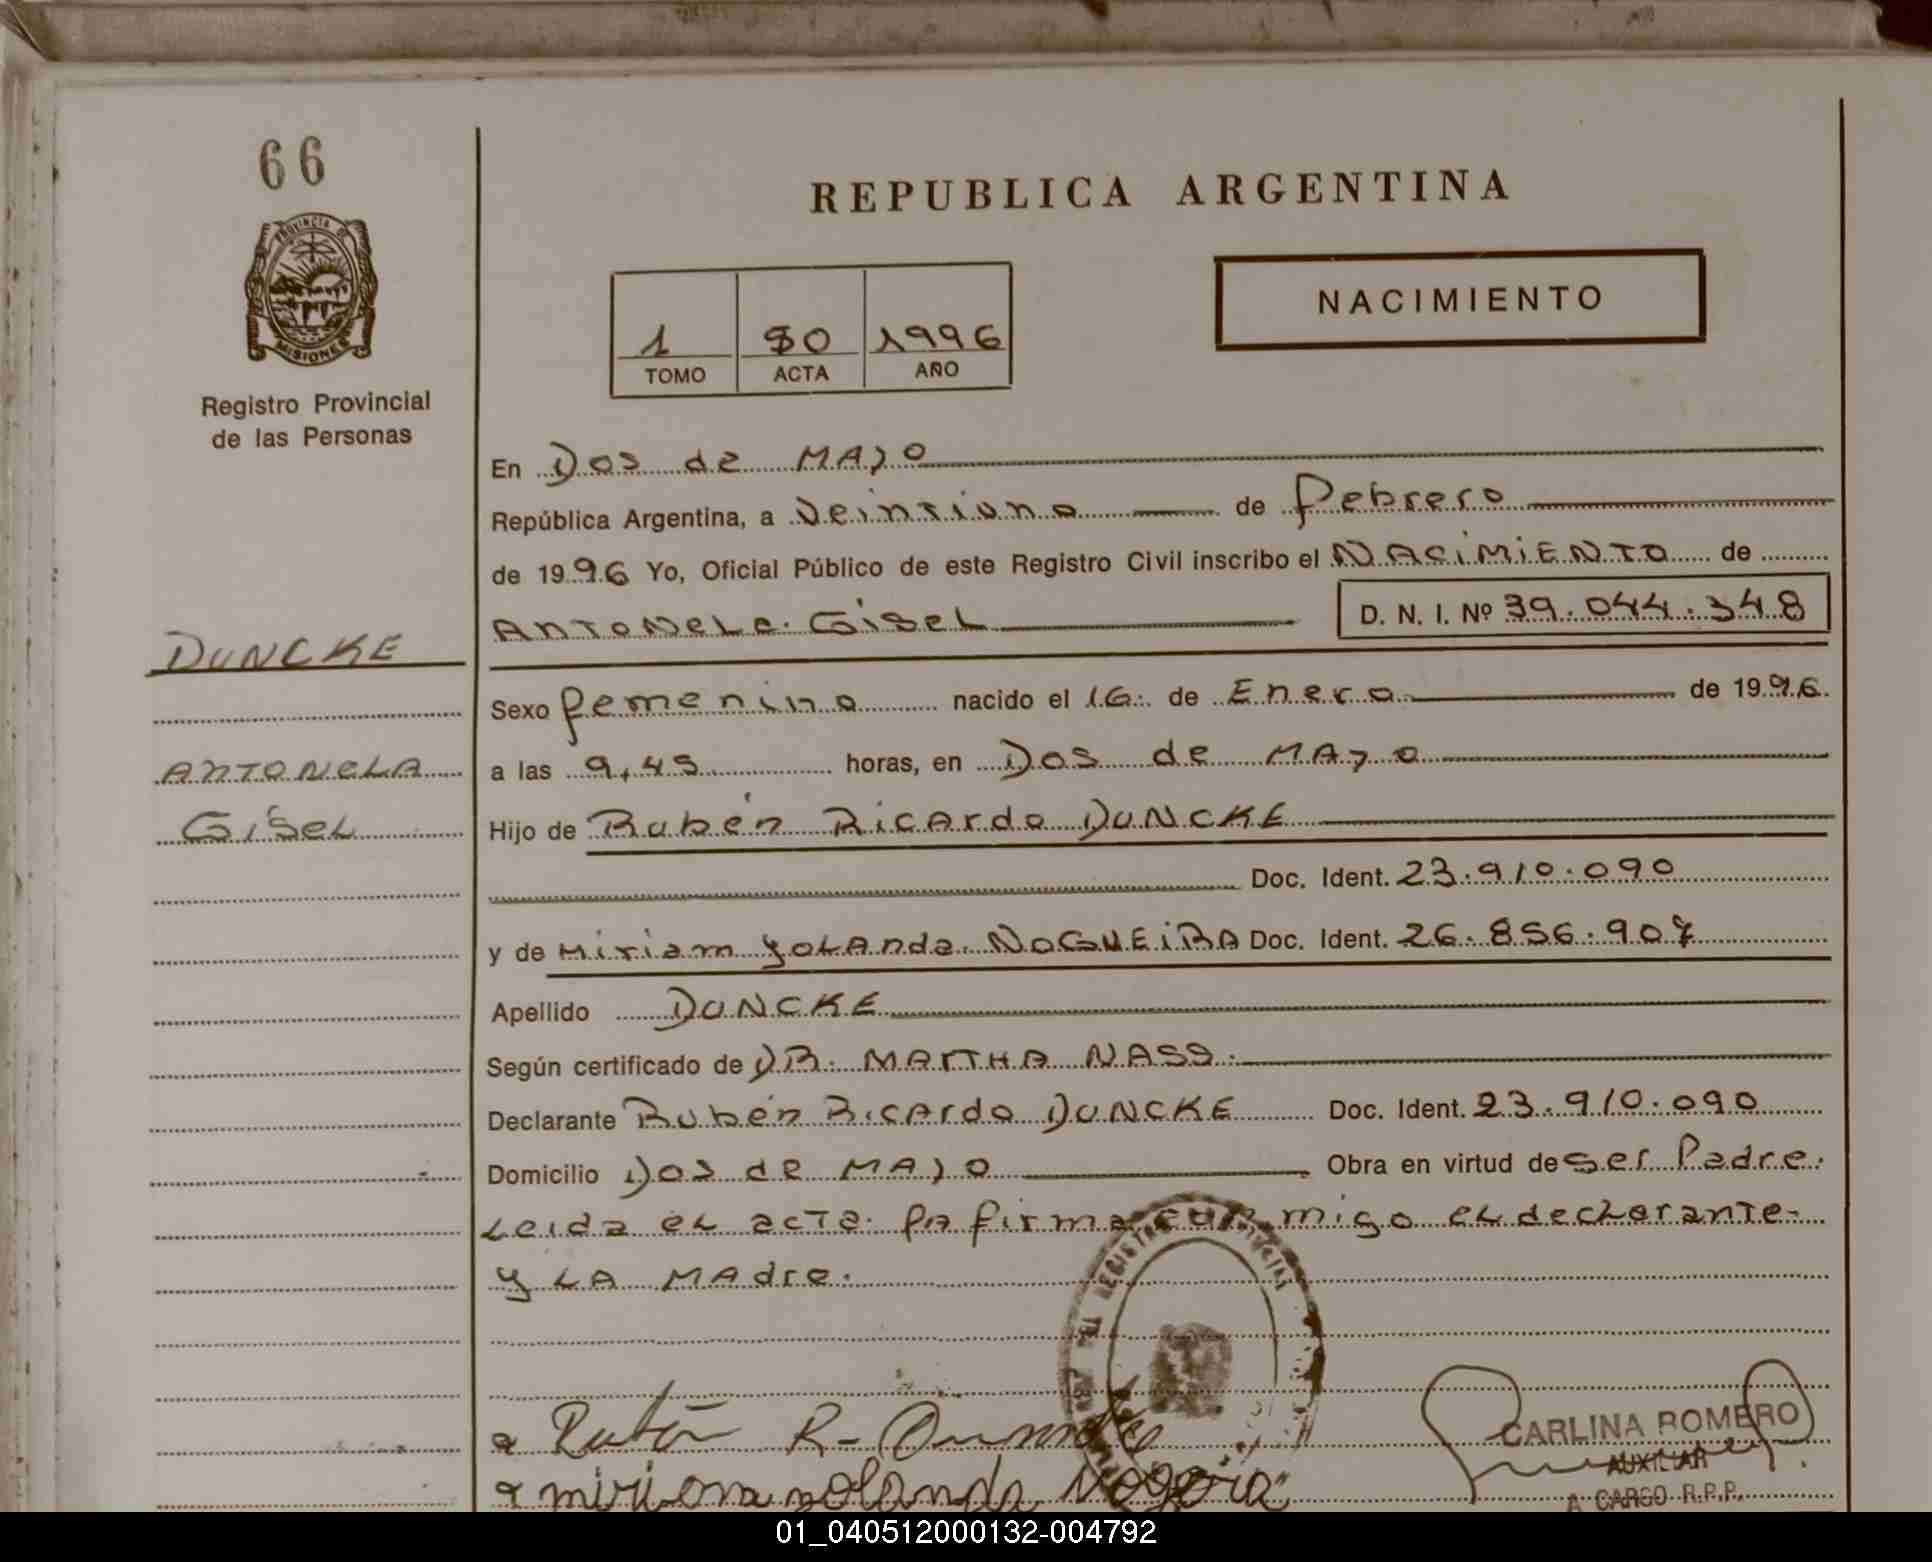 66
PROVINCIA DE
MISIONES
Registro Provincial
de las Personas
REPUBLICA ARGENTINA
NACIMIENTO
1 80 1996
TOMO ACTA AÑO
En Dos de MAyo
República Argentina, a Veintiuno de Febrero
de 1996 Yo, Oficial Público de este Registro Civil inscribo el NACiMiENTO de
ANTONELA GiseL D. N. I. Nº 39.044.348
DUNCKE
ANTONELA
GiseL
Sexo Femenino nacido el 16 de Enero de 1996.
a las 9,45 horas, en Dos de MAyo
Hijo de Rubén RicArdo DUNCKE
Doc. Ident. 23.910.090
y de Miriam YoLAnda NOGUEiRA Doc. Ident. 26.856.907
Apellido DUNCKE
Según certificado de DR. MARTHA NASS.
Declarante Rubén RicArdo DUNCKE Doc. Ident. 23.910.090
Domicilio Dos de MAyo Obra en virtud de ser Padre.
Leida el acta la firma conmigo el declarante
y LA MAdre.
Rubén R. Duncke
miriam yolanda Nogeira
CARLINA ROMERO
AUXILIAR
A CARGO R.P.P.
01_040512000132-004792